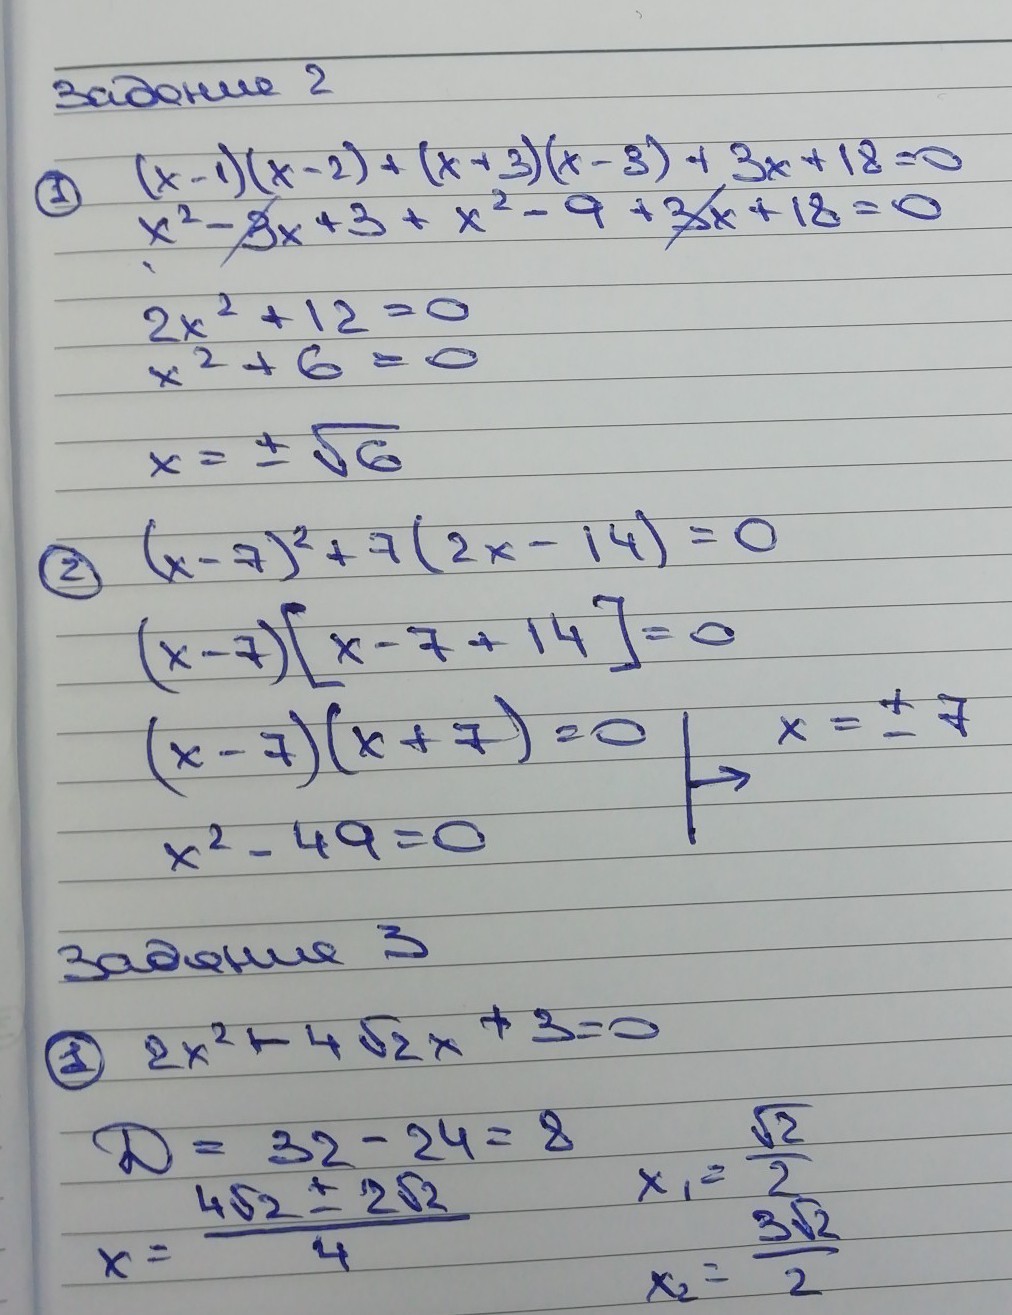 Задание 2
① (x-1)(x-2) + (x+3)(x-3) + 3x+18=0
x² - 3x + 3 + x² - 9 + 3x + 18 = 0
2x² + 12 = 0
x² + 6 = 0
x = ± √6
② (x-7)² + 7(2x-14) = 0
(x-7)[x-7+14] = 0
(x-7)(x+7) = 0
x = ± 7
x² - 49 = 0
Задание 3
① 2x² - 4√2x + 3=0
D = 32 - 24 = 8
x = (4√2 ± 2√2)/4
x₁ = √2/2
x₂ = 3√2/2